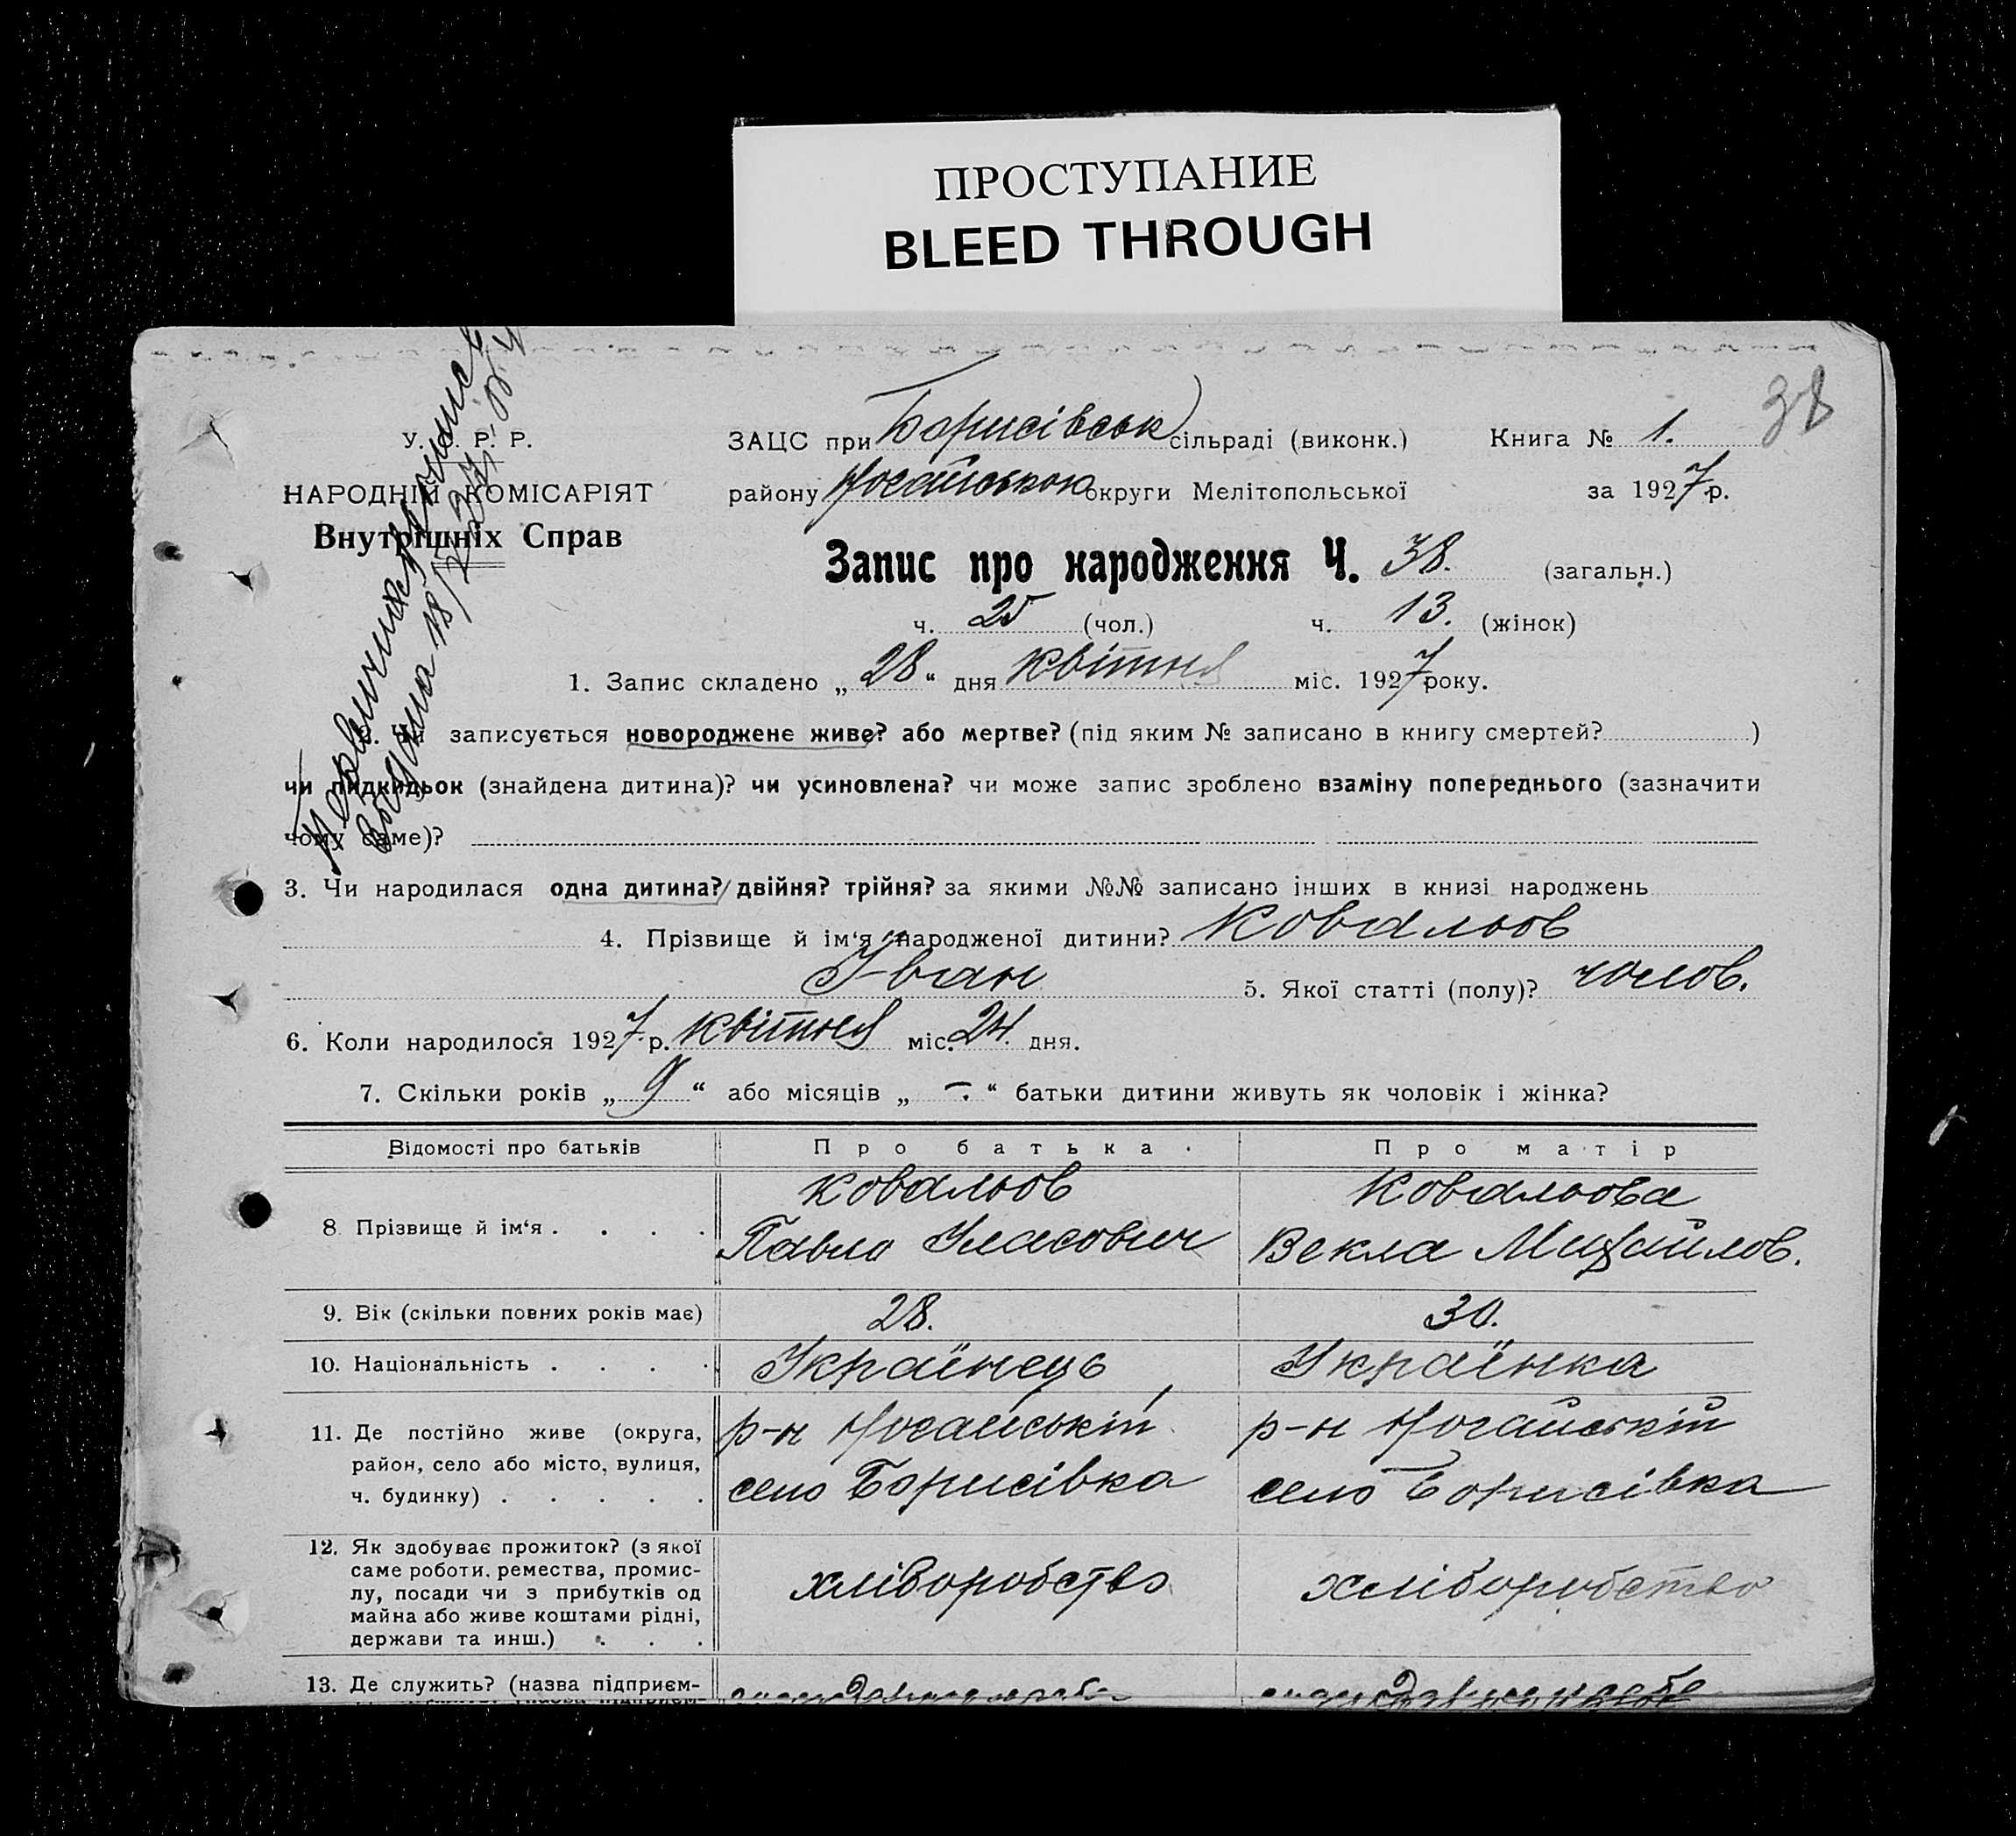 ПРОСТУПАНИЕ
BLEED THROUGH
38
У. С. Р. Р.
НАРОДНІЙ КОМІСАРІЯТ
Внутрішніх Справ
ЗАЦС при Борисівськ сільраді (виконк.) Книга № 1.
району Ногайського округи Мелітопольської за 1927 р.
Запис про народження Ч. 38. (загальн.)
ч. 25 (чол.) ч. 13. (жінок)
1. Запис складено „28“ дня квітня міс. 1927 року.
записується новороджене живе? або мертве? (під яким № записано в книгу смертей? )
чи підкидьок (знайдена дитина)? чи усиновлена? чи може запис зроблено взаміну попереднього (зазначити
чому саме)?
3. Чи народилася одна дитина? двійня? трійня? за якими №№ записано інших в книзі народжень
4. Прізвище й ім'я народженої дитини? Ковальов
Іван 5. Якої статті (полу)? чолов.
6. Коли народилося 1927 р. квітня міс. 24 дня.
7. Скільки років „9“ або місяців „-.“ батьки дитини живуть як чоловік і жінка?
Відомості про батьків Про батька. Про матір
Ковальов Ковальова
8 Прізвище й ім'я . . . . Павло Уласович Векла Михайлов.
9. Вік (скільки повних років має) 28. 30.
10. Національність . . . . Українець Українка
11. Де постійно живе (округа, р-н Ногайській р-н Ногайській
район, село або місто, вулиця,
ч. будинку) . . . . . село Борисівка село Борисівка
12. Як здобуває прожиток? (з якої
саме роботи. ремества, промис-
лу, посади чи з прибутків од хліборобство хліборобство
майна або живе коштами рідні,
держави та инш.) . . .
13. Де служить? (назва підприєм-